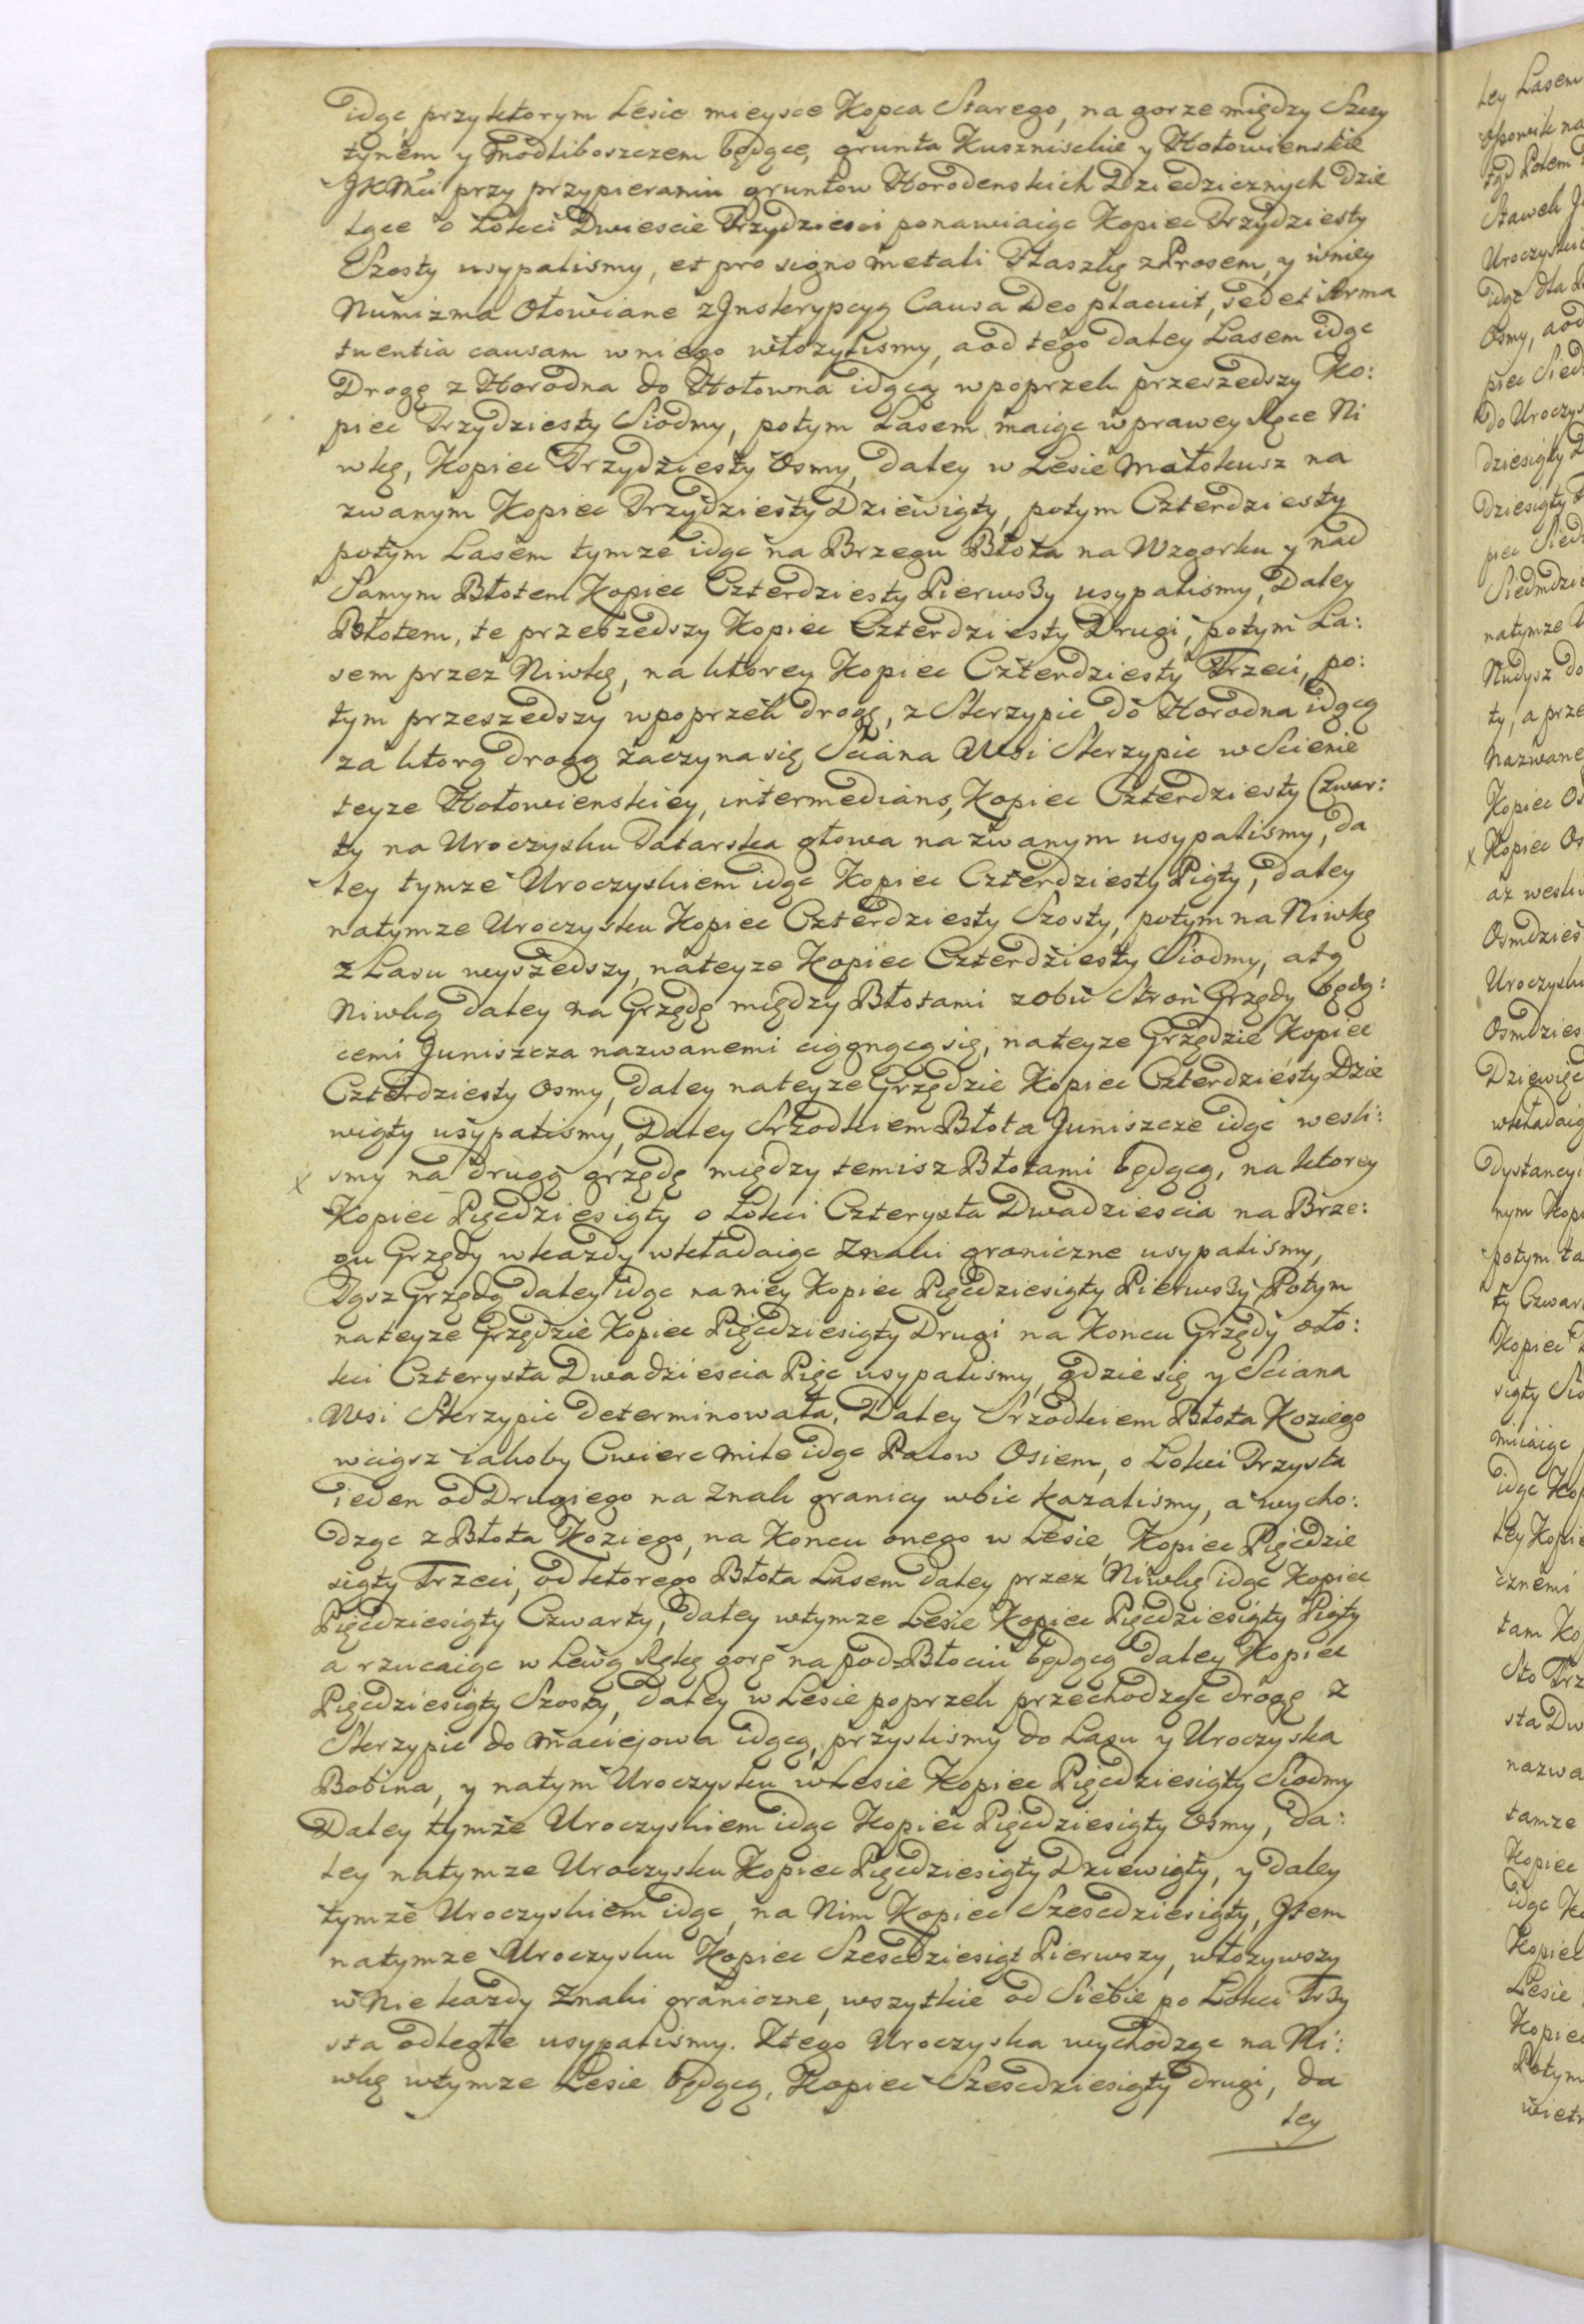 idąc, przy ktorym Lesie mieysce Kopca Starego, na gorze między Szczy
tynem y Modliboszczem będące, grunta Kusznisckie y Hołowienskie
JKMci przy przypieraniu gruntow Horodenskich Dziedzicznych dzie
lące o Łokci Dwiescie Trzydziesci ponawiaiąc Kopiec Trzydziesty
Szosty usypalismy, et pro signo metali Flaszkę z Prosem, y wniey
Numizma Ołowiane z Jnskrypcyą Causa Deo placuit, sed et Arma
tuentia causam w niego włozylismy, a od tego daley Lasem idąc
Drogę z Horodna do Hołowna idącą wpoprzek przeszedszy Ko:
piec Trzydziesty Siodmy, potym Lasem maiąc w prawey Ręce Ni
wkę, Kopiec Trzydziesty Osmy, daley w Lesie Małokusz na
zwanym Kopiec Trzydziesty Dziewiąty, potym Czterdziesty
potym Lasem tymze idąc na Brzegu Błota na Wzgorku y nad
Samym Błotem Kopiec Czterdziesty Pierwszy usypalismy, Daley
Błotem, te przeszedszy Kopiec Czterdziesty Drugi, potym La:
sem przez Niwkę, na ktorey Kopiec Czterdziesty Trzeci, po:
tym przeszedszy wpoprzek drogę, z Skrzypic do Horodna idącą
za ktorą drogą zaczyna się Sciana Wsi Skrzypic w Scienie
teyze Hołowienskiey, intermedians, Kopiec Czterdziesty Czwar:
ty na Uroczysku Tatarska głowa nazwanym usypalismy, da
ley tymze Uroczyskiem idąc Kopiec Czterdziesty Piąty, daley
natymze Uroczysku Kopiec Czterdziesty Szosty, potym na Niwkę
z Lasu wyszedszy, nateyze Kopiec Czterdziesty Siodmy, a tą
Niwką daley na Grzędę między Błotami z obu Stron Grzędy będą:
cemi Juniszcza nazwanemi ciągnącą się, nateyze Grzędzie Kopiec
Czterdziesty Osmy, daley nateyze Grzędzie Kopiec Czterdziesty Dzie
wiąty usypalismy, Daley Srzodkiem Błota Juniszcze idąc wesli:
x smy na drugą grzędę między temisz Błotami będącą, na ktorey
Kopiec Pięcdziesiąty o Łokci Czterysta Dwadziescia na Brze:
gu Grzędy w kazdy wkładaiąc Znaki graniczne usypalismy,
Tąsz Grzędą daley idąc na niey Kopiec Pięcdziesiąty Pierwszy Potym
nateyze Grzędzie Kopiec Pięcdziesiąty Drugi na Koncu Grzędy o Ło:
kci Czterysta Dwadziescia Pięc usypalismy, gdzie się y Sciana
Wsi Skrzypic determinowała. Daley Srzodkiem Błota Koziego
wciąsz iakoby Cwierc mile idąc Palow Osiem, o Łokci Trzysta
ieden od Drugiego na Znak granicy wbic kazalismy, a wycho:
dząc z Błota Koziego, na Koncu onego w Lesie, Kopiec Pięcdzie
siąty Trzeci, od ktorego Błota Lasem daley przez Niwkę idąc Kopiec
Pięcdziesiąty Czwarty, daley wtymze Lesie Kopiec Pięcdziesiąty Piąty
a rzucaiąc w Lewą Rękę gorę na pod Błociu będącą daley Kopiec
Pięcdziesiąty Szosty, daley w Lesie poprzek przechodząc drogę z
Skrzypic do Maciejowa idącą, przyslismy do Lasu y Uroczyska
Bobina, y natym Uroczysku w Lesie Kopiec Pięcdziesiąty Siodmy
Daley tymze Uroczyskiem idąc Kopiec Pięcdziesiąty Osmy, da:
ley natymze Uroczysku Kopiec Pięcdziesiąty Dziewiąty, y daley
tymze Uroczyskiem idąc, na Nim Kopiec Szescdziesiąty, Jtem
natymze Uroczysku Kopiec Szescdziesiąt Pierwszy, włozywszy
w Nie kazdy Znaki graniczne, wszytkie od Siebie po Łokci Trzy
sta odległe usypalismy. Ztego Uroczyska wychodząc na Ni:
wkę wtymze Lesie będącą, Kopiec Szescdziesiąty drugi, da
ley